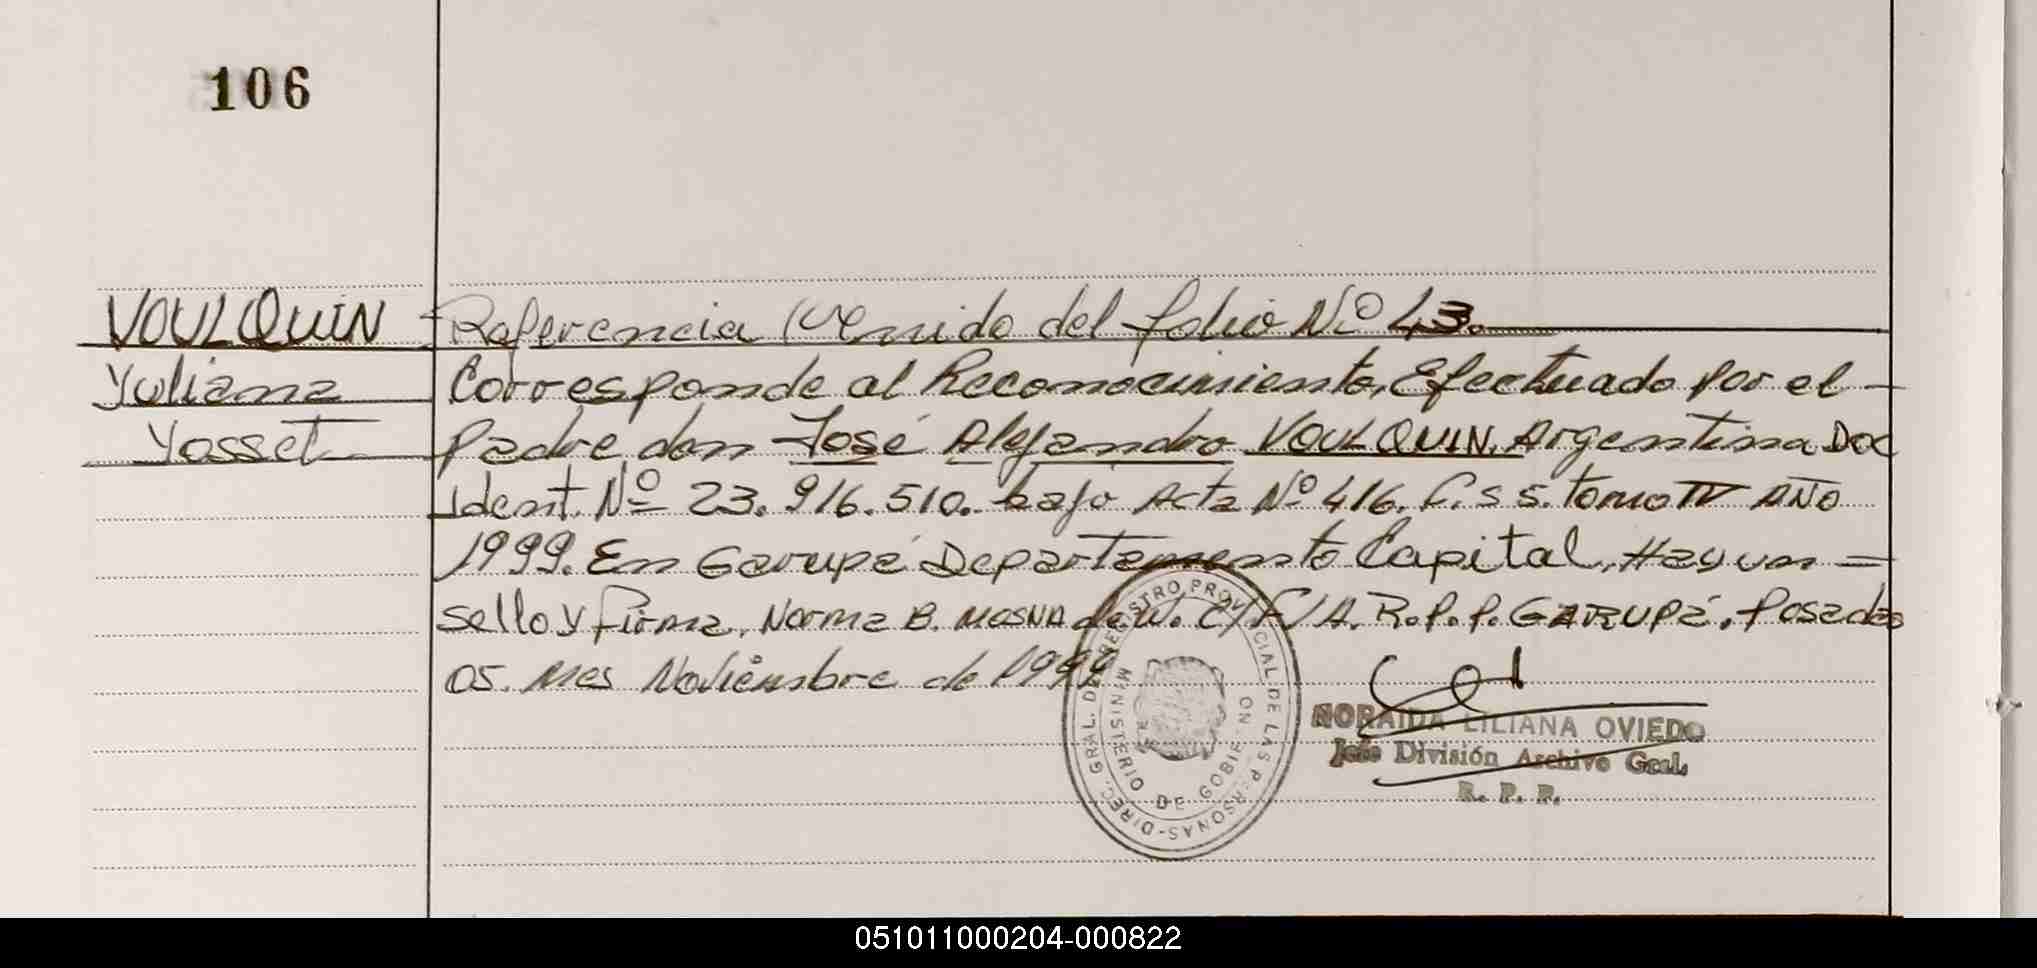 106
VOULQUIN
Yuliana
Yosset
Referencia (Venido del folio Nº 43.
Corresponde al Reconocimiento, Efectuado por el
padre don José Alejandro VOULQUIN. Argentina Doc
Ident. Nº 23.916.510. bajo Acta Nº 416. F. S S. tomo IV AÑO
1999. En Garupá Departamento Capital, Hay un
sello y firma. Norma B. MOSNA de W. E/F/A. R.P.P. GARUPÁ. Posadas
05. Mes Noviembre de 1999
DIREC. GRAL. DE REGISTRO PROVINCIAL DE LAS PERSONAS
MINISTERIO DE GOBIERNO
NORAIDA LILIANA OVIEDO
Jefe División Archivo Gral.
R. P. P.
051011000204-000822